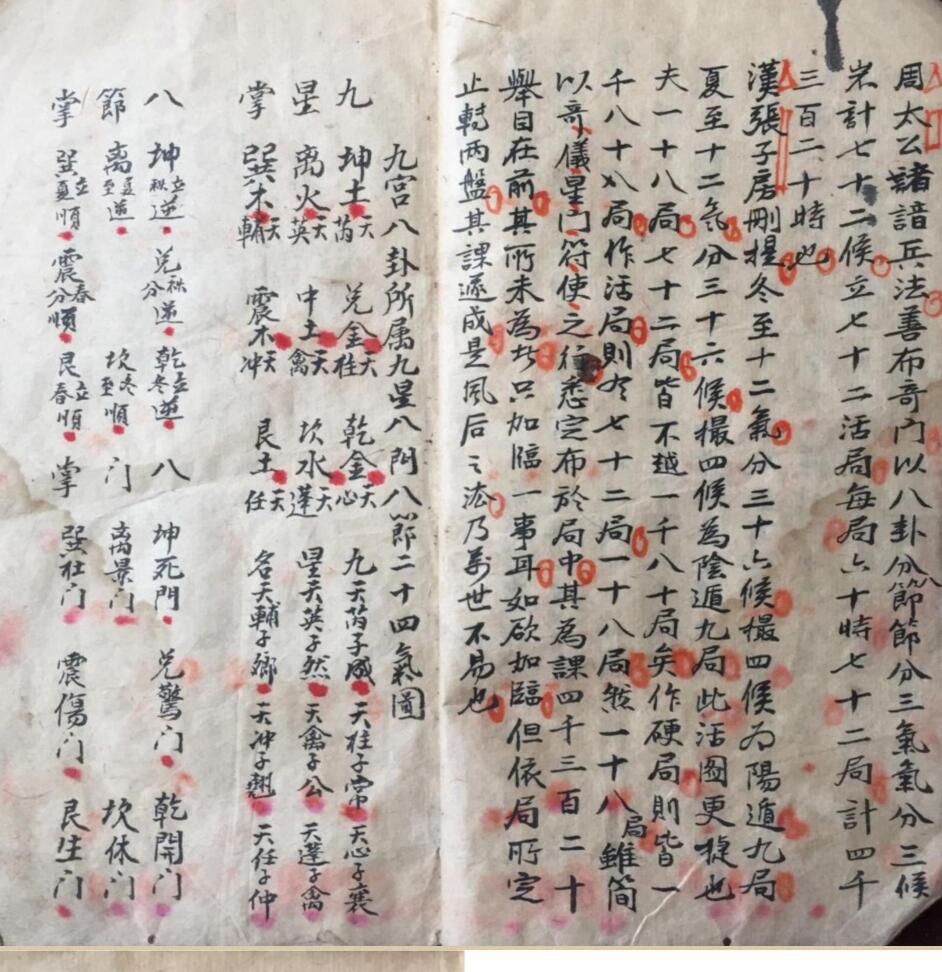 周太公諸諳兵法善布奇门以八卦分節節分三氣氣分三候
岩計七十二候立七十二活局每局六十時七十二局計四千
三百二十時也
漢張子房刪捏冬至十二氣分三十六候撮四候为陽遁九局
夏至十二氣分三十六候撮四候為陰遁九局此活图更捷也
夫一十八局七十二局皆不越一千八十局矣作硬局則皆一
千八十局作活局則为七十二局一十八局然一十八局雖简
以奇儀星门符使之行悉定布於局中其為課四千三百二十
舉目在前其所未為者只加臨一事耳如欲加臨但依局所定
止轉两盤其課遂成是风后之法乃萬世不易也
九宫八卦所属九星八門八節二十四氣圖
九 坤土天芮 兑金天柱 乾金天心
星 离火天英 中土天禽 坎水天蓬
掌 巽木天輔 震木天冲 艮土天任
九 天芮子成 天柱子常 天心子襄
星 天英子然 天禽子公 天蓬子禽
名 天輔子鄉 天冲子翹 天任子仲
八 坤立秋逆 兑秋分逆 乾立冬逆
節 离夏至逆 坎冬至順
掌 巽立夏順 震春分順 艮立春順
八 坤死門 兑驚门 乾開门
门 离景门 坎休门
掌 巽杜门 震傷门 艮生门